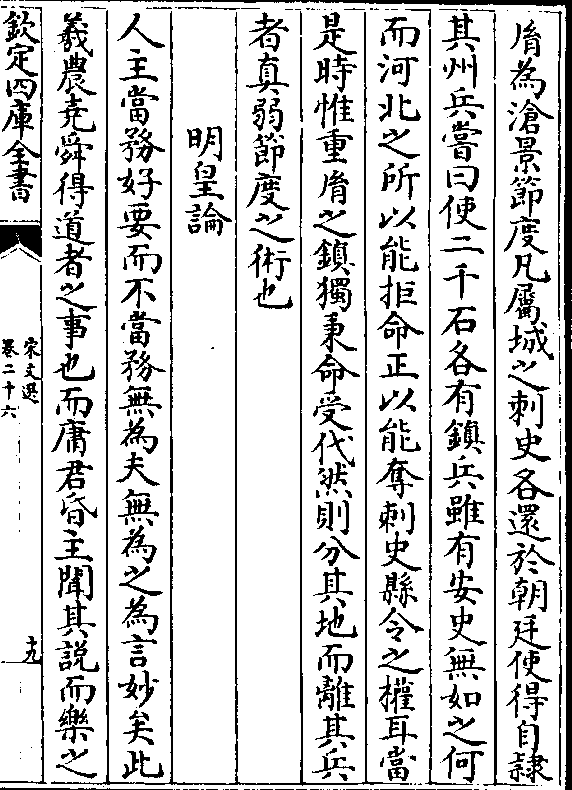 胤為滄景節度凡屬城之刺史各還於朝廷使得自隷
其州兵嘗曰使二千石各有鎮兵雖有安史無如之何
而河北之所以能拒命正以能奪刺史縣令之權耳當
是時惟重胤之鎮獨秉命受代然則分其地而離其兵
者真弱節度之術也
明皇論
人主當務好要而不當務無為夫無為之為言妙矣此
羲農堯舜得道者之事也而庸君昏主聞其説而樂之
欽定四庫全書
宋文選
卷二十六
十九